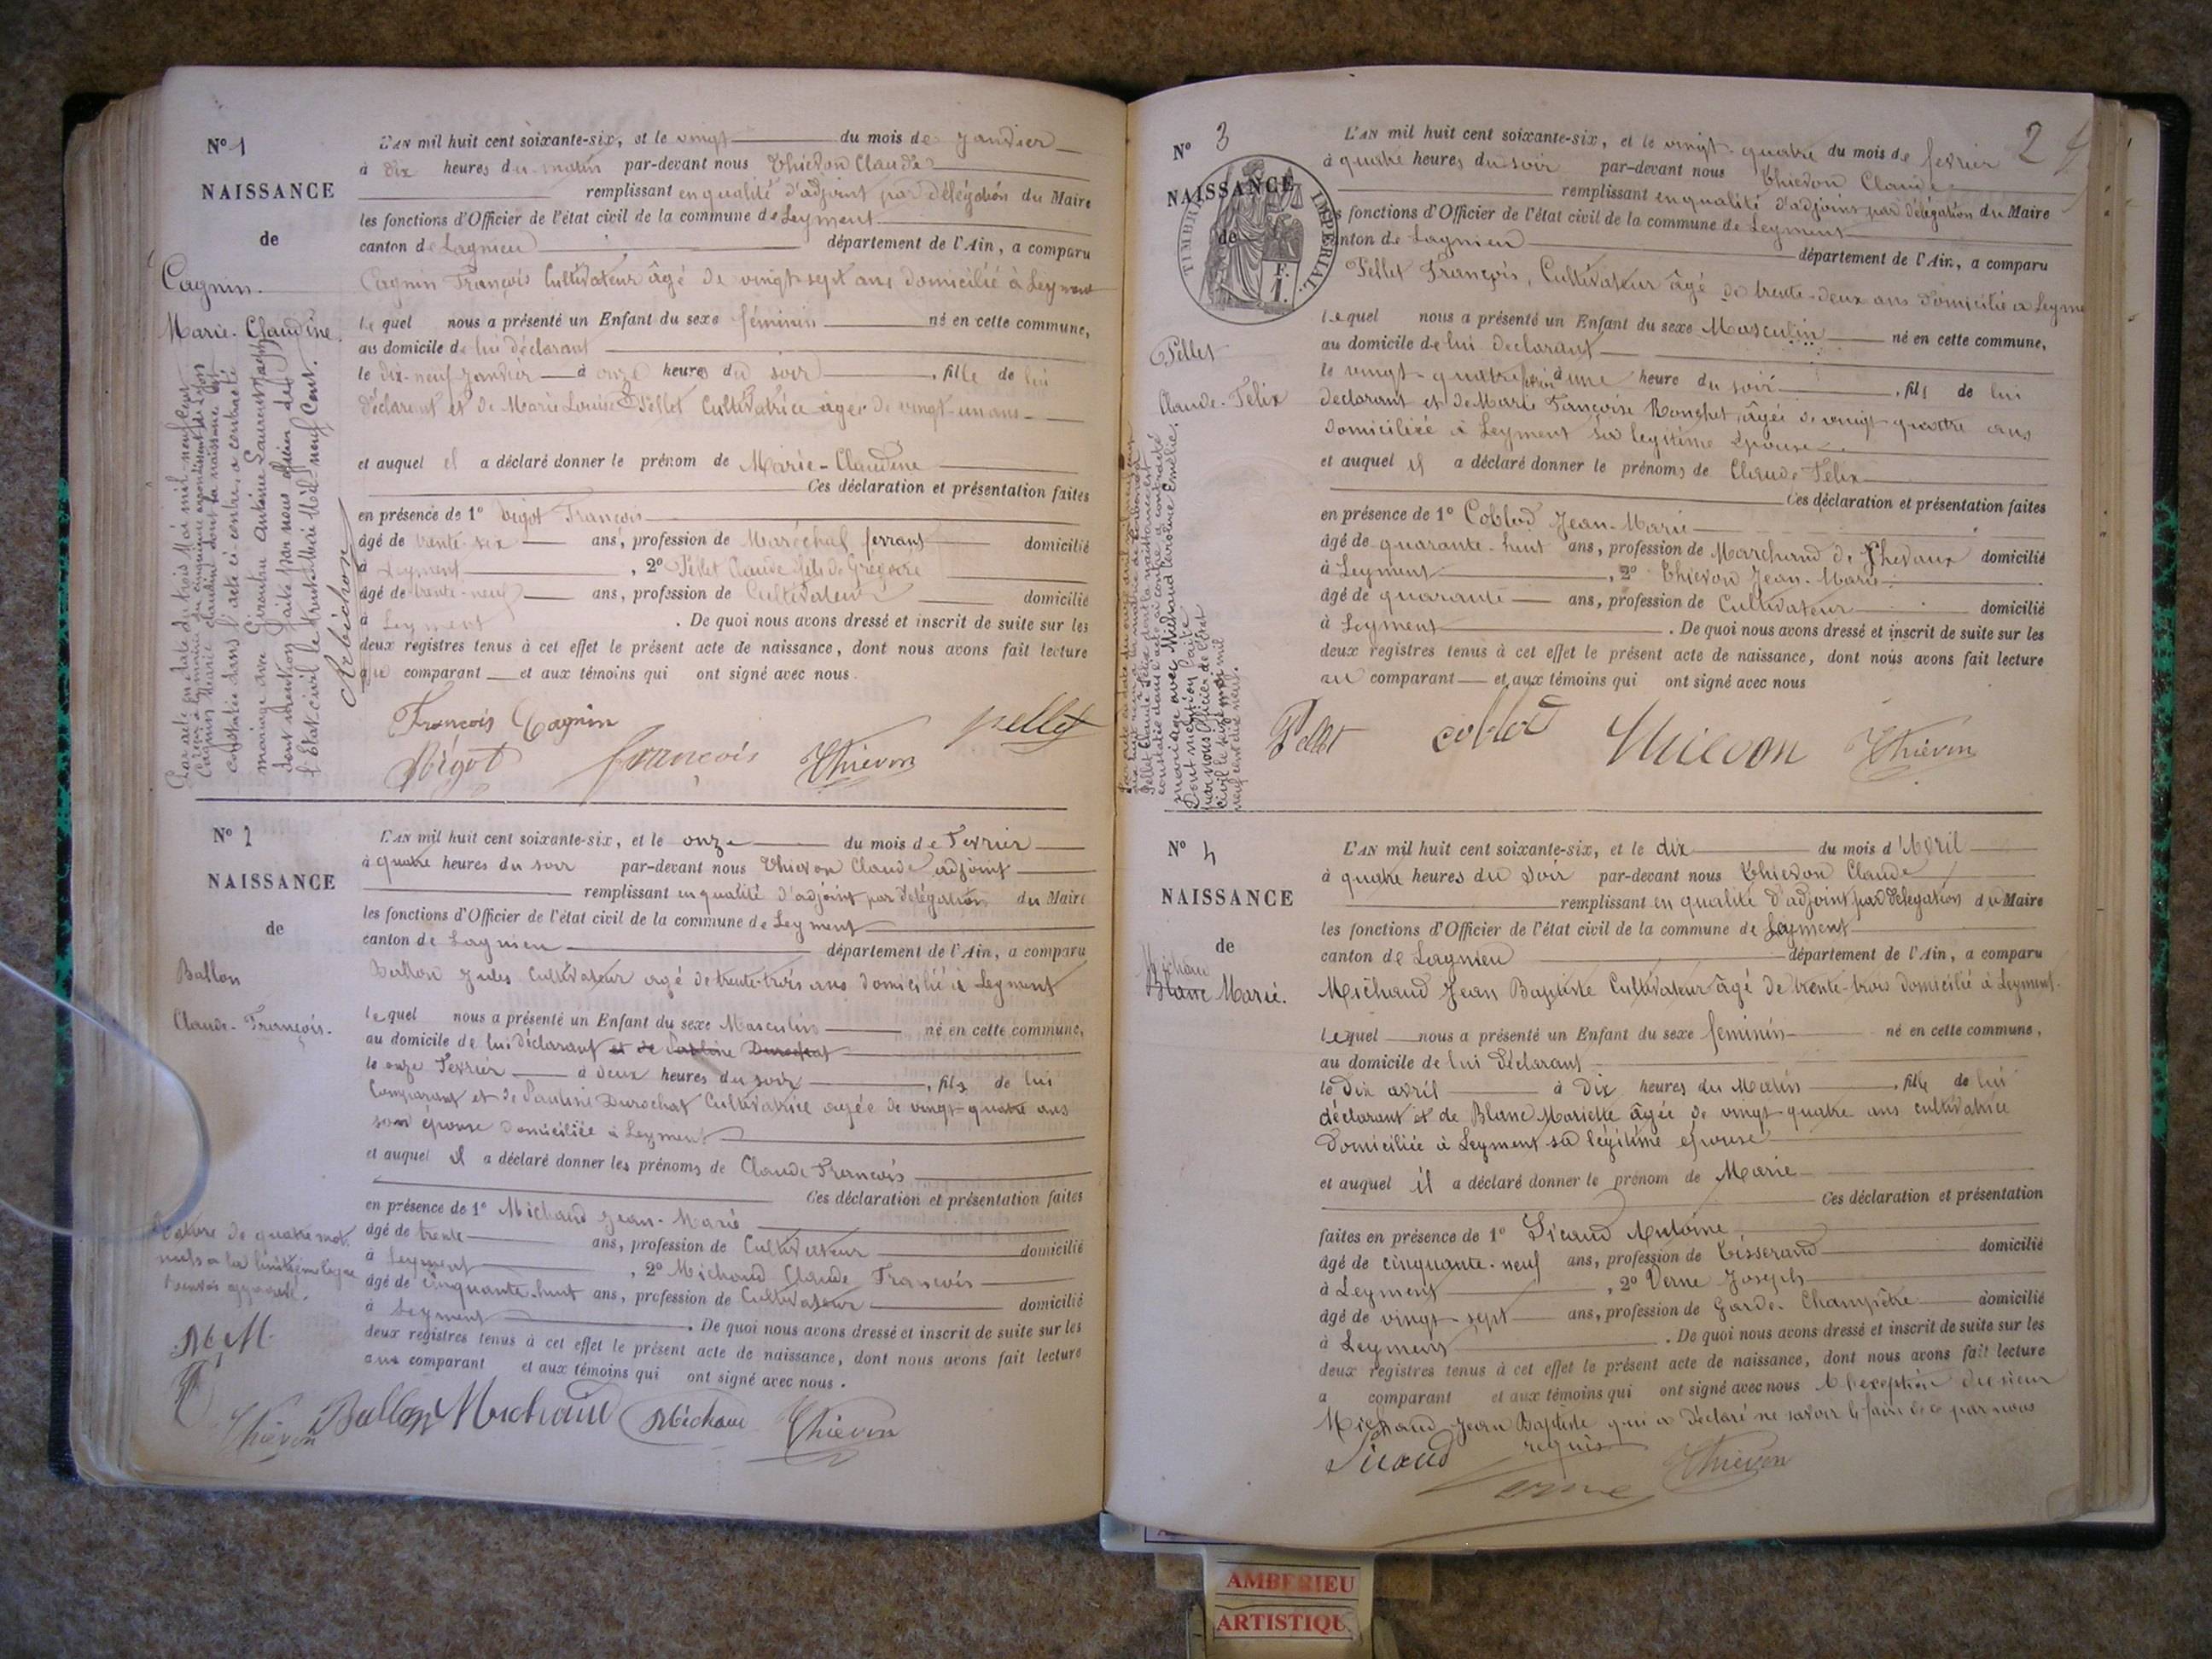 N° 1
NAISSANCE
de
Cagnin
Marie-Claudine.
L'AN mil huit cent soixante-six, et le vingt du mois de Janvier
à dix heures du matin par-devant nous Thievon Claude
remplissant en qualité d'adjoint par délégation du Maire
les fonctions d'Officier de l'état civil de la commune de Leyment
canton de Lagnieu département de l'Ain, a comparu
Cagnin François Cultivateur âgé de vingt-sept ans domicilié à Leyment
lequel nous a présenté un Enfant du sexe féminin né en cette commune,
au domicile de lui déclarant
le dix-neuf Janvier à onze heures du soir, fille de lui
déclarant et de Marie Louise Pellet Cultivatrice âgée de vingt-un ans
et auquel il a déclaré donner le prénom de Marie-Claudine
Ces déclaration et présentation faites
en présence de 1° Bigot François
âgé de trente-six ans, profession de Maréchal ferrant domicilié
à Leyment, 2° Pellet Claude fils de Gregoire
âgé de trente-neuf ans, profession de Cultivateur domicilié
à Leyment. De quoi nous avons dressé et inscrit de suite sur les
deux registres tenus à cet effet le présent acte de naissance, dont nous avons fait lecture
au comparant et aux témoins qui ont signé avec nous.
François Cagnin
pellet
Bigot françois Thievon
Par acte en date du trois Mai mil neuf cent
Cagnin Marie Claudine dont la naissance est
constatée dans l'acte ci contre, a contracté
mariage avec Giroutru Antoine Laurent Joseph
dont mention faite par nous officier de
l'Etat civil le trente Mai Mil neuf Cent.
N° 2
NAISSANCE
de
Ballon
Claude-François.
L'AN mil huit cent soixante-six, et le onze du mois de Fevrier
à quatre heures du soir par-devant nous Thievon Claude adjoint
remplissant en qualité d'adjoint par délégation du Maire
les fonctions d'Officier de l'état civil de la commune de Leyment
canton de Lagnieu département de l'Ain, a comparu
Ballon Jules Cultivateur agé de trente-trois ans domicilié à Leyment
lequel nous a présenté un Enfant du sexe Masculin né en cette commune,
au domicile de lui déclarant et de Pauline Durochat
le onze Fevrier à deux heures du soir, fils de lui
Comparant et de Pauline Durochat Cultivatrice agée de vingt-quatre ans
son épouse domiciliée à Leyment
et auquel il a déclaré donner les prénoms de Claude François
Ces déclaration et présentation faites
en présence de 1° Michaud Jean-Marie
âgé de trente ans, profession de Cultivateur domicilié
à Leyment, 2° Michaud Claude François
âgé de cinquante-huit ans, profession de Cultivateur domicilié
à Leyment. De quoi nous avons dressé et inscrit de suite sur les
deux registres tenus à cet effet le présent acte de naissance, dont nous avons fait lecture
aux comparant et aux témoins qui ont signé avec nous.
Rature de quatre mots
nuls a la huitième ligne
approuvé.
Thievon Ballon Michaud Michaud Thievon
2
N° 3
NAISSANCE
de
TIMBRE IMPERIAL.
Pellet
Claude-Felix
L'AN mil huit cent soixante-six, et le vingt-quatre du mois de fevrier
à quatre heures du soir par-devant nous Thievon Claude
remplissant en qualité d'adjoint par délégation du Maire
les fonctions d'Officier de l'état civil de la commune de Leyment
canton de Lagnieu département de l'Ain, a comparu
Pellet François, Cultivateur âgé de trente-deux ans domicilié a Leyme
lequel nous a présenté un Enfant du sexe Masculin né en cette commune,
au domicile de lui declarant
le vingt-quatre à une heure du soir, fils de lui
declarant et de Marie Françoise âgée de vingt-quatre ans
domiciliée à Leyment sa legitime Epouse
et auquel il a déclaré donner le prénoms de Claude Felix
Ces déclaration et présentation faites
en présence de 1° Coblod Jean-Marie
âgé de quarante-huit ans, profession de Marchand de Chevaux domicilié
à Leyment, 2° Thievon Jean-Marie
âgé de quarante ans, profession de Cultivateur domicilié
à Leyment. De quoi nous avons dressé et inscrit de suite sur les
deux registres tenus à cet effet le présent acte de naissance, dont nous avons fait lecture
au comparant et aux témoins qui ont signé avec nous
Pellet coblod Thievon Thievon
Pellet Claude Felix dont la naissance est
constatée dans l'acte ci contre a contracté
mariage avec Michaud Emélie.
Dont mention faite
par nous Officier de l'état
civil le mil
neuf cent dix neuf.
N° 4
NAISSANCE
de
Michaud
Blanc Marie.
L'AN mil huit cent soixante-six, et le dix du mois d'Avril
à quatre heures du soir par-devant nous Thievon Claude
remplissant en qualité d'adjoint par délégation du Maire
les fonctions d'Officier de l'état civil de la commune de Leyment
canton de Lagnieu département de l'Ain, a comparu
Michaud Jean Baptiste Cultivateur âgé de trente-trois domicilié à Leyment.
Lequel nous a présenté un Enfant du sexe feminin né en cette commune,
au domicile de lui déclarant
le dix avril à dix heures du Matin, fille de lui
déclarant et de Blanc Mariette âgée de vingt-quatre ans cultivatrice
domiciliée à Leyment sa légitime epouse
et auquel il a déclaré donner le prénom de Marie
Ces déclaration et présentation
faites en présence de 1° Sicaud Antoine
âgé de cinquante-neuf ans, profession de Tisserand domicilié
à Leyment, 2° Verne Joseph
âgé de vingt-sept ans, profession de Garde-Champêtre domicilié
à Leyment. De quoi nous avons dressé et inscrit de suite sur les
deux registres tenus à cet effet le présent acte de naissance, dont nous avons fait lecture
a comparant et aux témoins qui ont signé avec nous à l'exception du sieur
Michaud Jean Baptiste qui a déclaré ne savoir le faire de ce par nous
requis
Sicaud Verne Thievon
AMBERIEU
ARTISTIQU